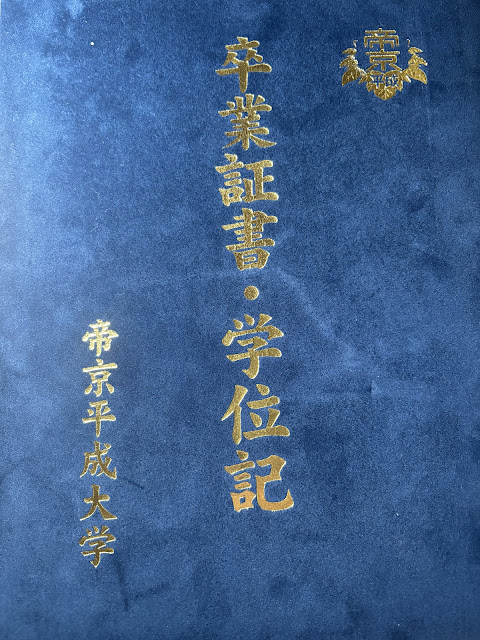 帝京平成
卒業証書・学位記
帝京平成大学